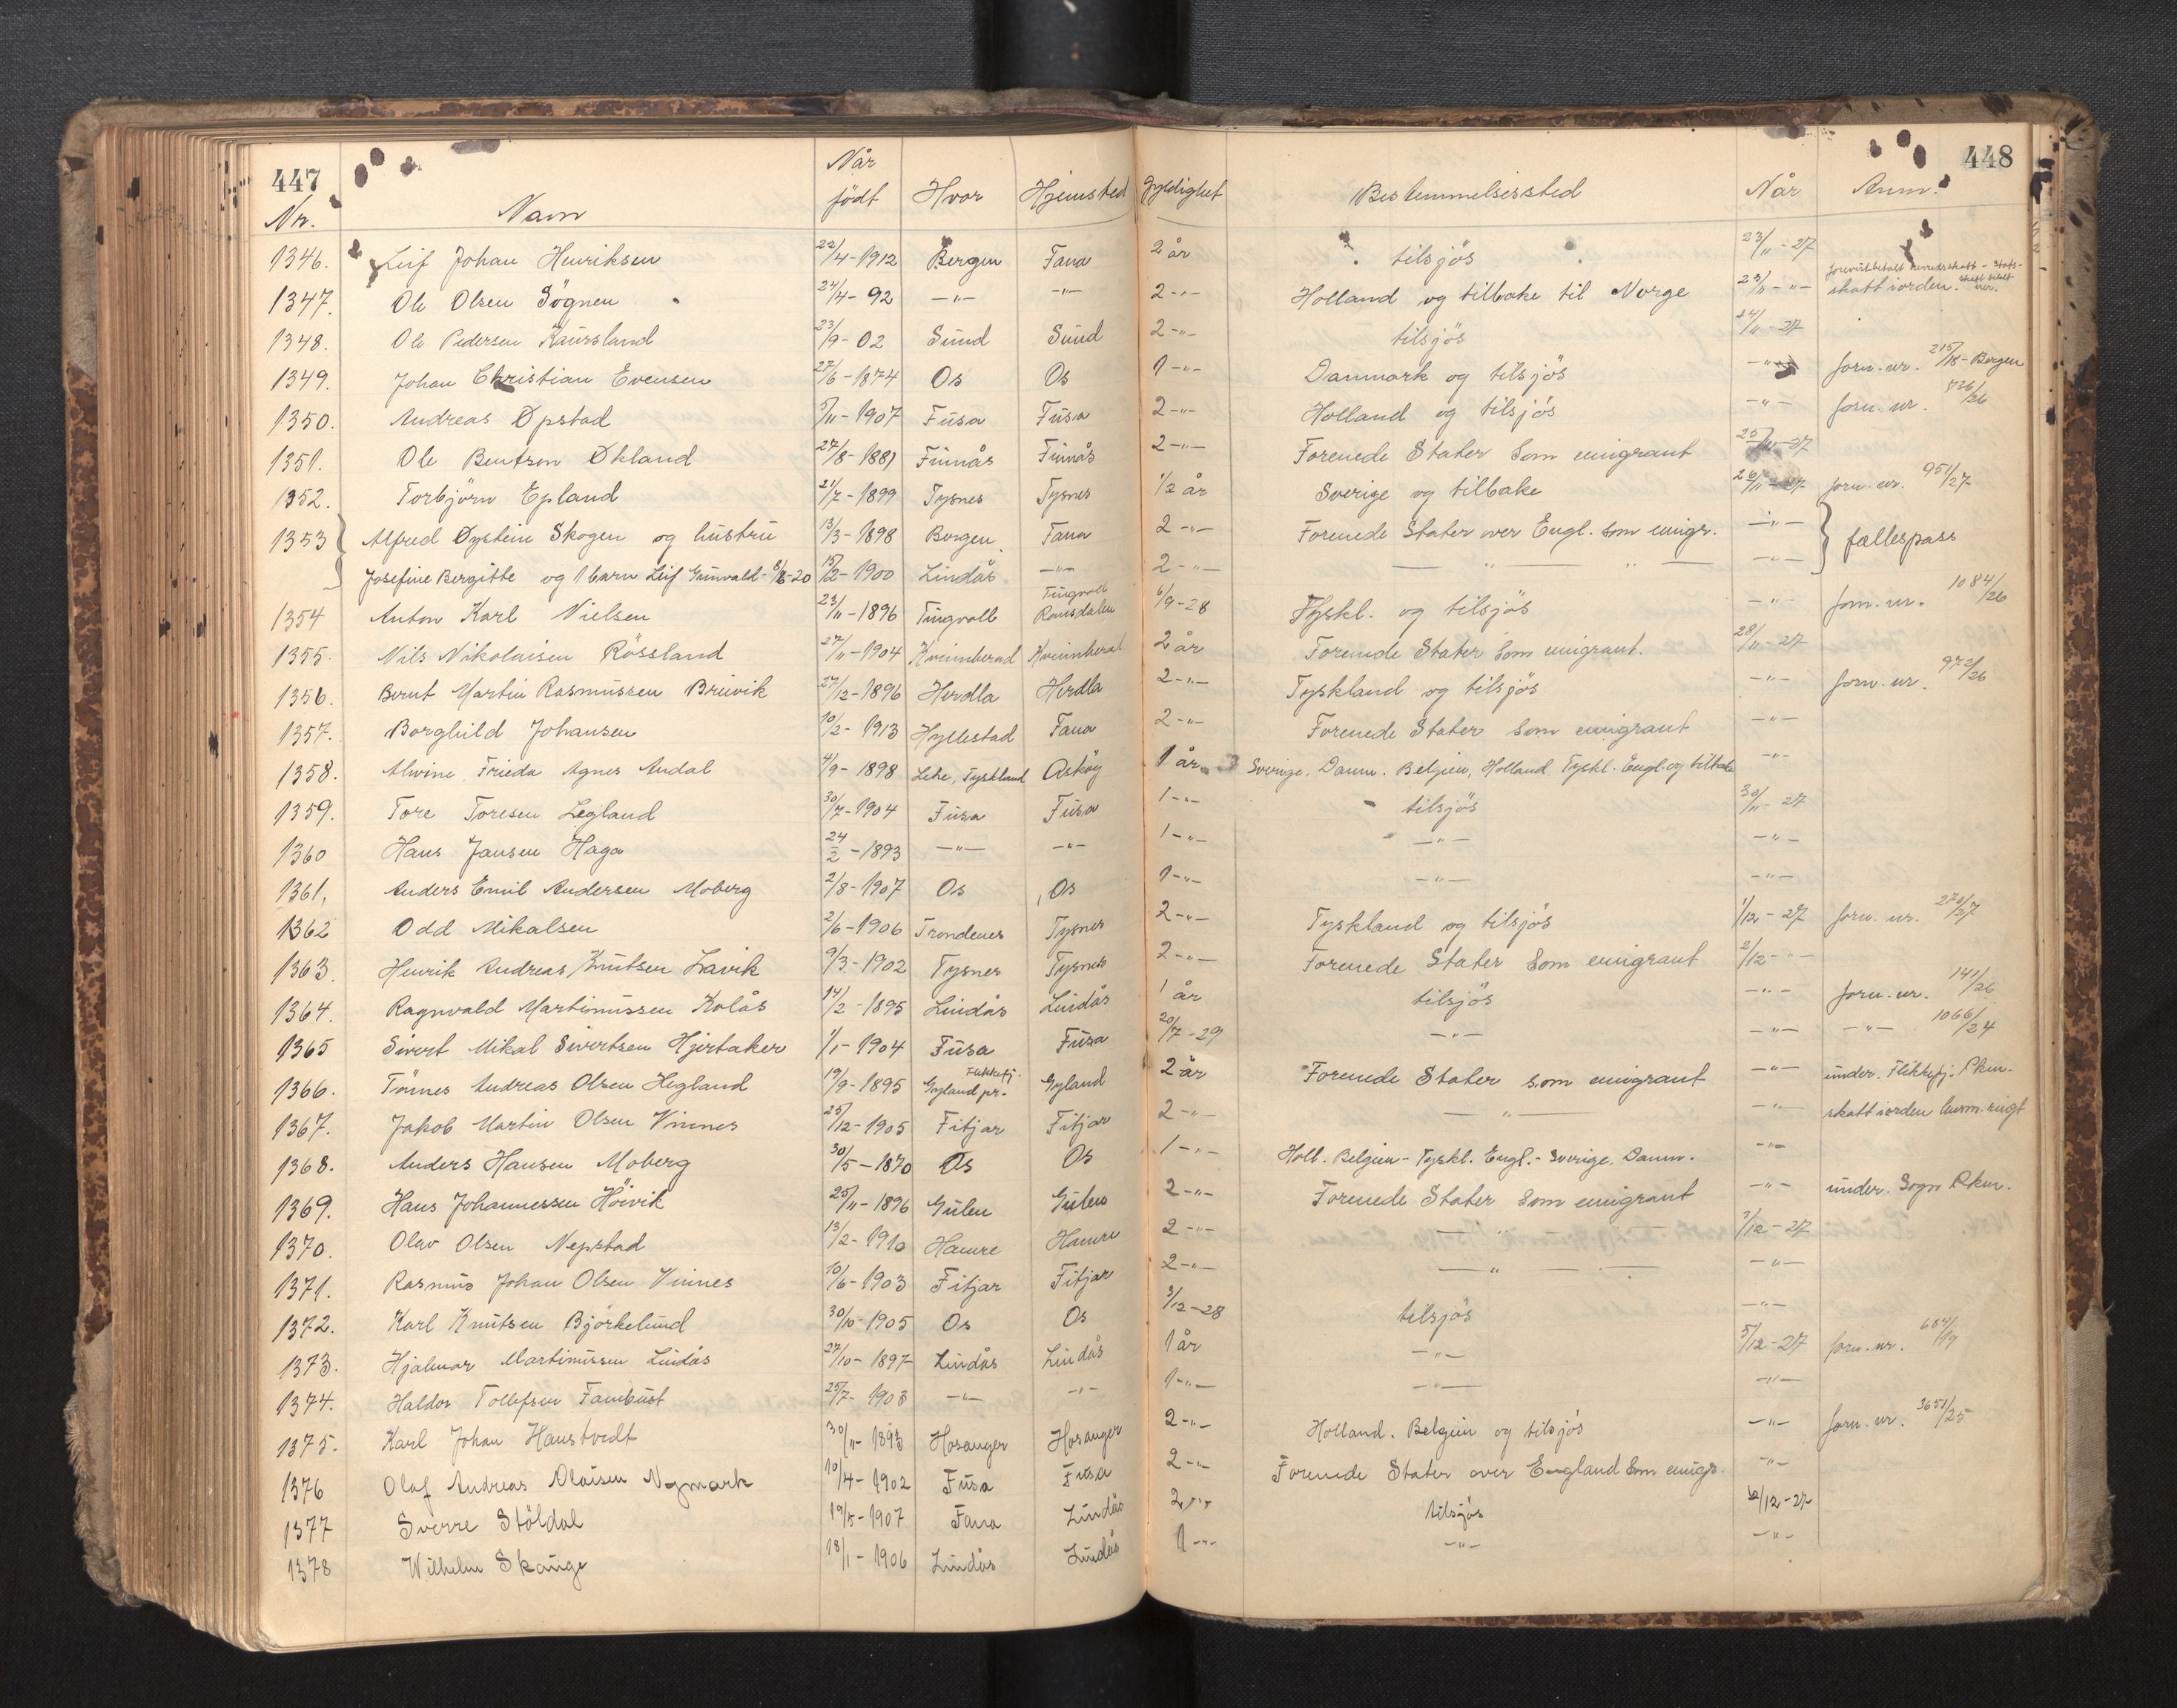 447
448
Nr. Navn Når født Hvor Hjemsted Gyldighet Bestemmelsessted Når Anm.
1346. Leif Johan Henriksen 22/4-1912 Bergen Fana 2 år tilsjös 23/11-27
1347. Ole Olsen Sögnen 24/4-92 —"— —"— 2-"- Holland og tilbake til Norge 23/11-"- skatt iorden.
1348. Ole Pedersen Kaursland 23/9-02 Sund Sund 2-"- tilsjös 24/11-27
1349. Johan Christian Evensen 27/6-1874 Os Os 1-"- Danmark og tilsjös -"- forn. nr. 215/18-Bergen
1350. Andreas Øpstad 5/11-1907 Fusa Fusa 2-"- Holland og tilsjös -"- forn. nr. 726/26
1351. Ole Bentsen Økland 27/8-1881 Finnås Finnås 2-"- Forenede Stater som emigrant 25/11-27
1352. Torbjörn Epland 21/7-1899 Tysnes Tysnes 1/2 år Sverige og tilbake 26/11-27 forn. nr. 951/27
1353 } Alfred Øystein Skogen og hustru 13/3-1898 Bergen Fana 2-"- Forenede Stater over Engl. som emigr. -"- } fællespass
Josefine Bergitte og 1 barn Leif Grunvald- 8/8-20 15/2-1900 Lindås -"- 2-"- — " — " — -"-
1354 Anton Karl Nielsen 23/11-1896 Tingvoll Tingvoll Romsdalen 6/9-28 Tyskl. og tilsjös -"- forn. nr. 1084/26
1355. Nils Nikolaisen Rössland 27/11-1904 Kvinnherad Kvinnherad 2 år Forenede Stater som emigrant. 28/11-27
1356. Bernt Martin Rasmussen Breivik 27/12-1896 Herdla Herdla 2-"- Tyskland og tilsjös -"- forn. nr. 972/26
1357. Borghild Johansen 10/2-1913 Hyllestad Fana 2-"- Forenede Stater som emigrant -"-
1358. Alwine Frieda Agnes Andal 4/9-1898 Lehe, Tyskland Askøy 1 år Sverige, Danm. Belgien, Holland, Tyskl. Engl. og tilbake -"-
1359. Tore Toresen Legland 30/7-1904 Fusa Fusa 1-"- tilsjös 30/11-27
1360 Hans Jansen Haga 24/2-1893 —"— -"- 1-"- —"— -"-
1361. Anders Emil Andersen Moberg 2/8-1907 Os Os 1-"- —"— -"-
1362 Odd Mikalsen 2/6-1906 Trondenes Tysnes 2-"- Tyskland og tilsjös 1/12-27 forn. nr. 270/27
1363. Henrik Andreas Knutsen Lavik 9/3-1902 Tysnes Tysnes 2-"- Forenede Stater som emigrant 2/12-"-
1364. Ragnvald Martinussen Kolås 14/2-1895 Lindås Lindås 1 år tilsjös -"- forn. nr. 141/26
1365 Sivert Mikal Sivertsen Hjertaker 1/1-1904 Fusa Fusa 20/7-29 —"— -"- -"- 1066/24
1366. Tönnes Andreas Olsen Hegland 19/9-1895 Gyland pr. Flekkefj. Gyland 2 år Forenede Stater som emigrant -"- under. Flekkefj. Pkm.
1367. Jakob Martin Olsen Vinnes 25/12-1905 Fitjar Fitjar 2-"- — " — -"- skatt iorden
1368. Anders Hansen Moberg 30/5-1870 Os Os 1-"- Holl. Belgien - Tyskl. Engl. - Sverige. Danm. -"-
1369. Hans Johannessen Höivik 25/11-1896 Gulen Gulen 2-"- Forenede Stater som emigrant -"- under. Sogn Pkm.
1370. Olav Olsen Nepstad 13/2-1910 Hamre Hamre 2-"- — " — 3/12-27
1371. Rasmus Johan Olsen Vinnes 10/6-1903 Fitjar Fitjar 2-"- — " — -"-
1372. Karl Knutsen Björkelund 30/10-1905 Os Os 3/12-28 tilsjös -"-
1373. Hjalmar Martinussen Lindås 27/10-1897 Lindås Lindås 1 år —"— 5/12-27 forn. nr. 684/19
1374. Haldor Tollefsen Fambust 25/7-1903 -"- -"- 1-"- —"— -"-
1375. Karl Johan Haustvedt 30/11-1893 Hosanger Hosanger 2-"- Holland. Belgien og tilsjös -"- forn. nr. 3651/25
1376 Olaf Andreas Olaisen Nymark 10/4-1902 Fusa Fusa 2-"- Forenede Stater over England som emigr. -"-
1377 Sverre Stöldal 19/5-1907 Fana Lindås 2-"- tilsjös 6/12-27
1378 Wilhelm Skauge 18/1-1906 Lindås Lindås 1-"- -"- -"-